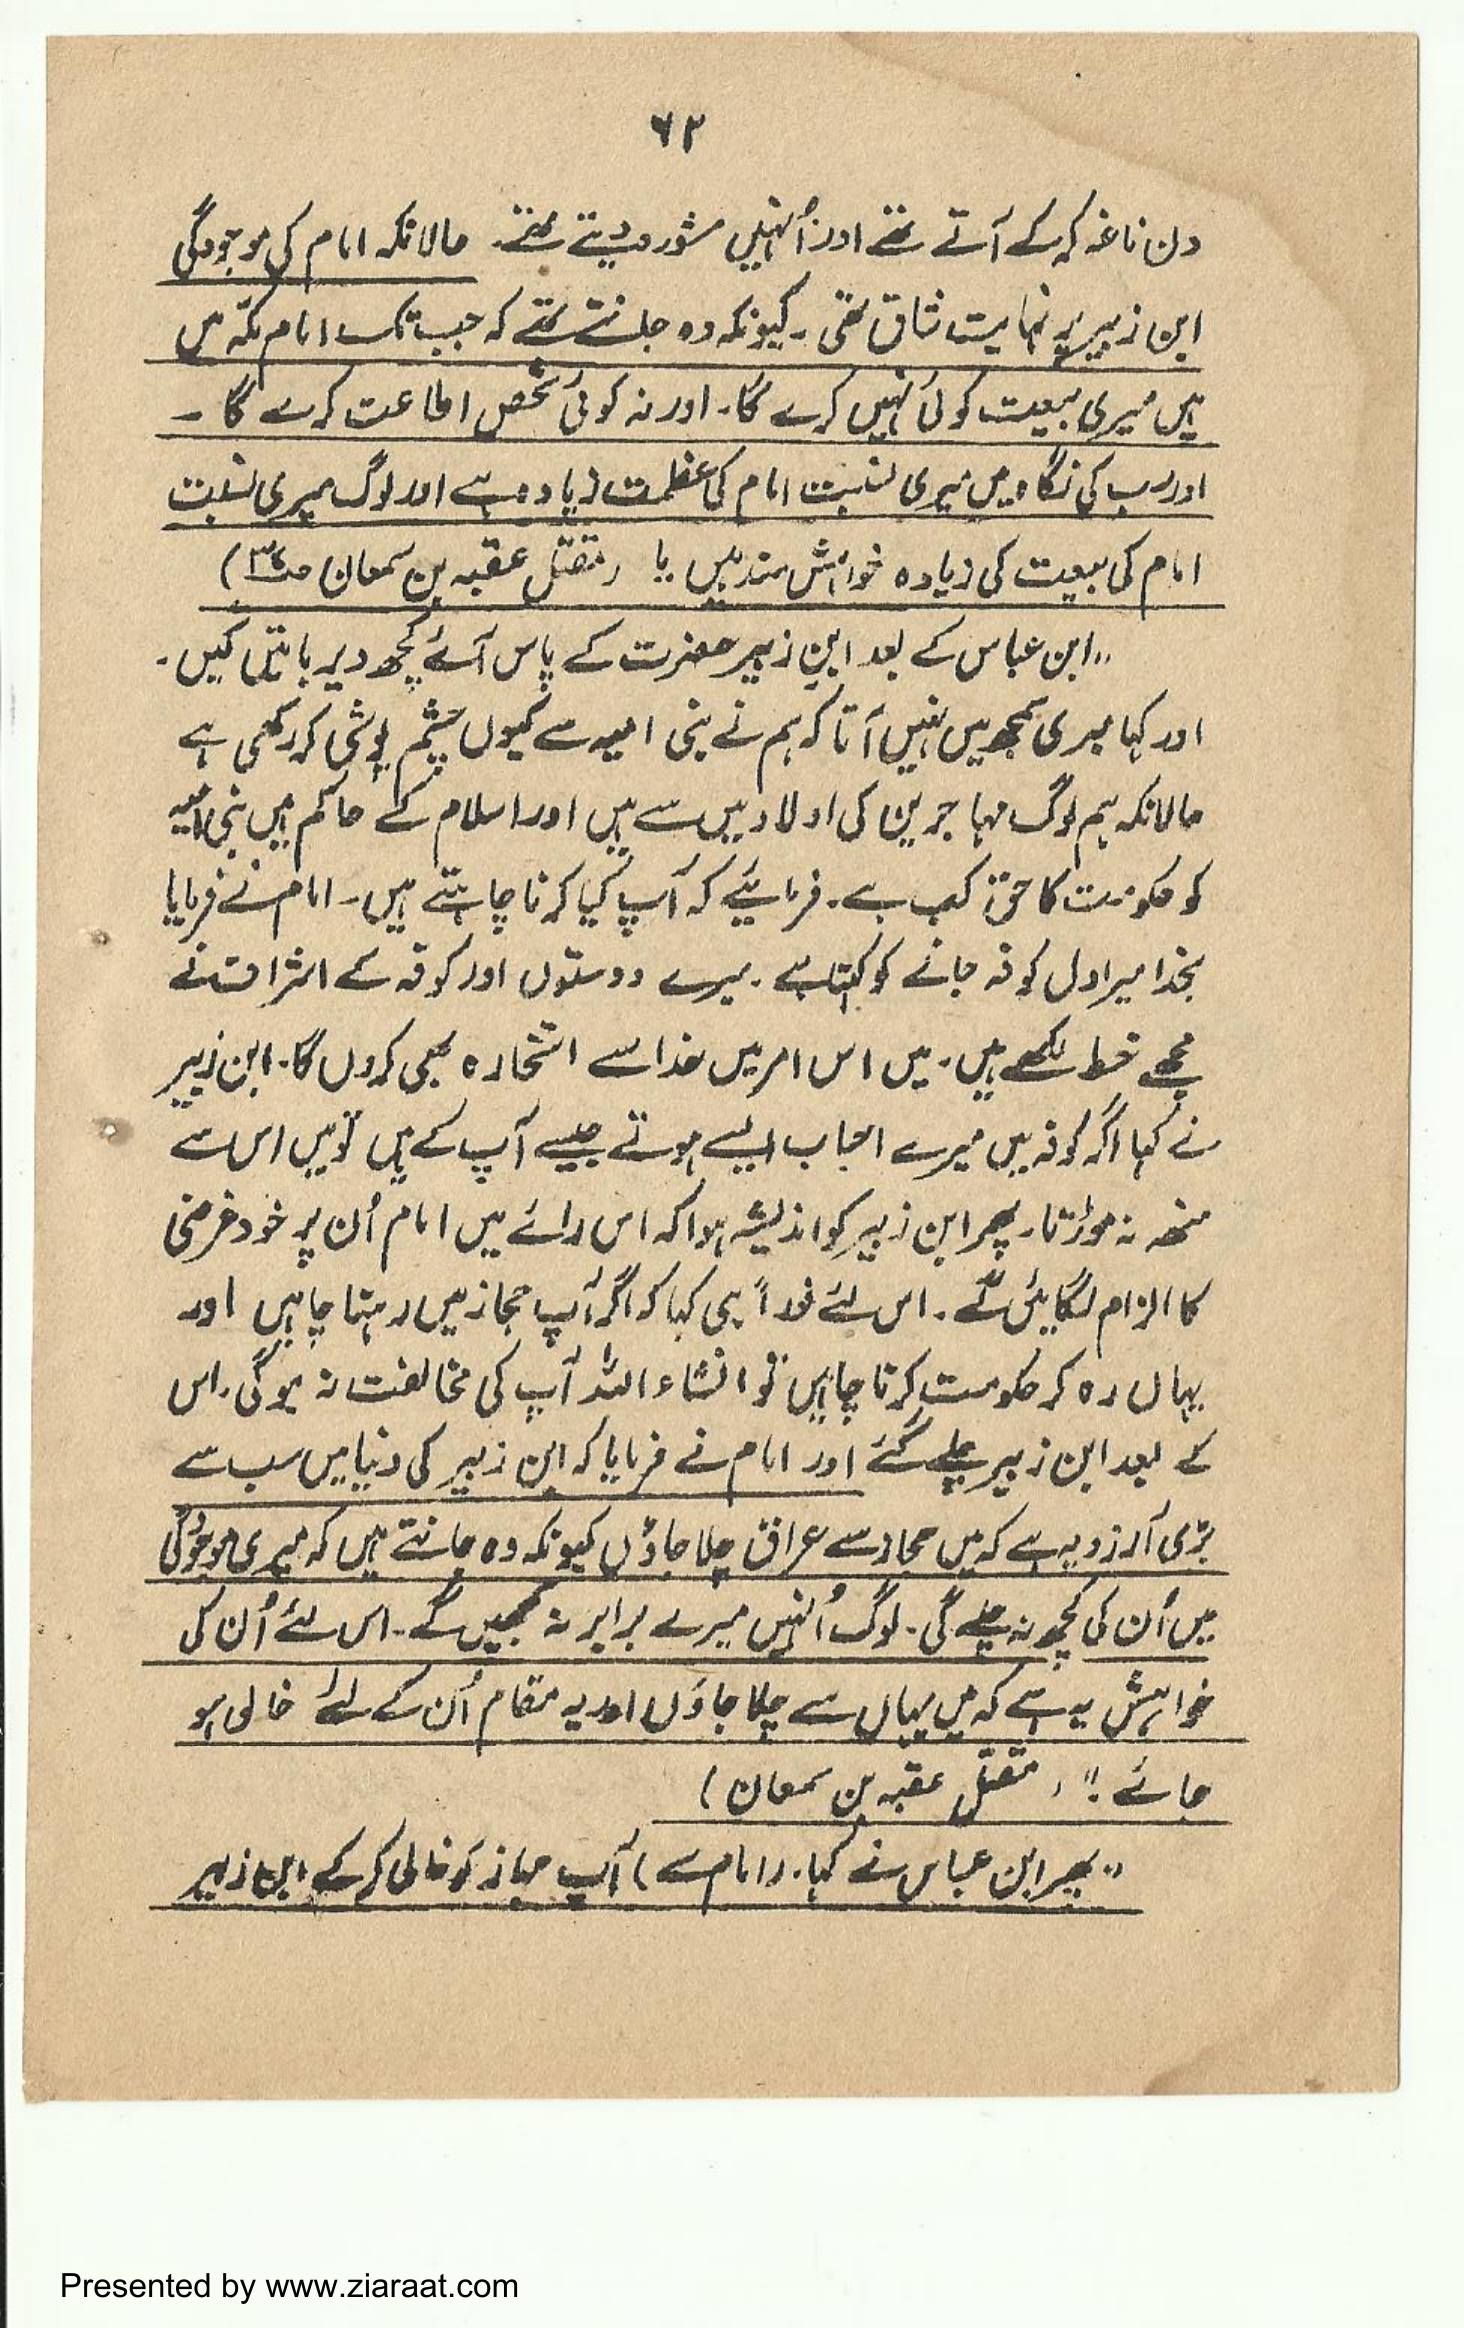 ۶۲
دن ناغہ کر کے آتے تھے اور اُنہیں مشورہ دیتے تھے۔ حالانکہ امام کی موجودگی
ابن زبیر پر نہایت شاق تھی۔ کیونکہ وہ جانتے تھے کہ جب تک امام مکّہ میں
ہیں میری بیعت کوئی نہیں کرے گا۔ اور نہ کوئی شخص اطاعت کرے گا ۔
اور سب کی نگاہ میں میری نسبت امام کی عظمت زیادہ ہے اور لوگ میری نسبت
امام کی بیعت کی زیادہ خواہش مند ہیں " (مقتل عقبہ بن سمعان
"ابن عباس کے بعد ابن زبیر حضرت کے پاس آئے کچھ دیر باتیں کیں۔
اور کہا میری سمجھ میں نہیں آتا کہ ہم نے بنی امیہ سے کیوں چشم پوشی کر رکھی ہے
حالانکہ ہم لوگ مہاجرین کی اولاد میں سے ہیں اور اسلام کے حاکم ہیں بنی امیہ
کو حکومت کا حق کب ہے۔ فرمائیے کہ آپ کیا کرنا چاہتے ہیں۔ امام نے فرمایا
بخدا میرا دل کوفہ جانے کو کہتا ہے۔ میرے دوستوں اور کوفہ کے اشراف نے
مجھے خط لکھے ہیں۔ میں اس امر میں خدا سے استخارہ بھی کروں گا۔ ابن زبیر
نے کہا اگر کوفہ میں میرے احباب ایسے ہوتے جیسے آپ کے ہیں تو میں اس سے
منھ نہ موڑتا۔ پھر ابن زبیر کو اندیشہ ہوا کہ اس رائے میں امام اُن پر خود غرضی
کا الزام لگائیں گے۔ اس لئے فوراً ہی کہا کہ اگر آپ حجاز میں رہنا چاہیں اور
یہاں رہ کر حکومت کرنا چاہیں تو انشاء اللہ آپ کی مخالفت نہ ہوگی۔ اس
کے بعد ابن زبیر چلے گئے اور امام نے فرمایا کہ ابن زبیر کی دنیا میں سب سے
بڑی آرزو یہ ہے کہ میں حجاز سے عراق چلا جاؤں کیونکہ وہ جانتے ہیں کہ میری موجودگی
میں اُن کی کچھ نہ چلے گی۔ لوگ اُنہیں میرے برابر نہ سمجھیں گے۔ اس لئے اُن کی
خواہش یہ ہے کہ میں یہاں سے چلا جاؤں اور یہ مقام اُن کے لئے خالی ہو
جائے!" (مقتل عقبہ بن سمعان)
"پھر ابن عباس نے کہا۔ (امام سے) آپ حجاز کو خالی کر کے ابن زبیر
Presented by www.ziaraat.com